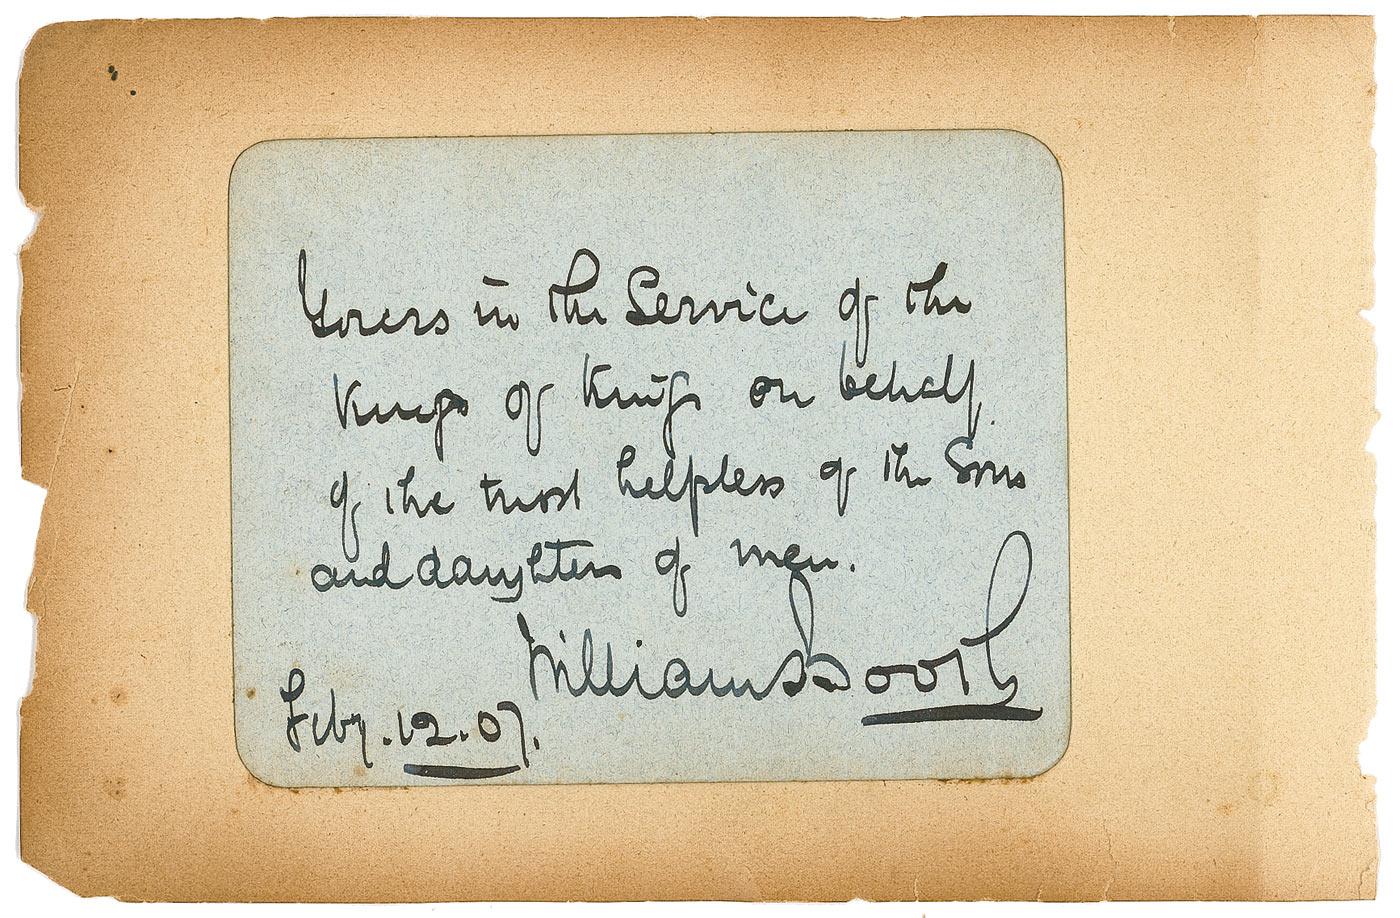 Yours in the Service of the
Kings of Kings on behalf
of the most helpless of the Sons
and daughters of men.
William Booth
Feby. 12. 07.